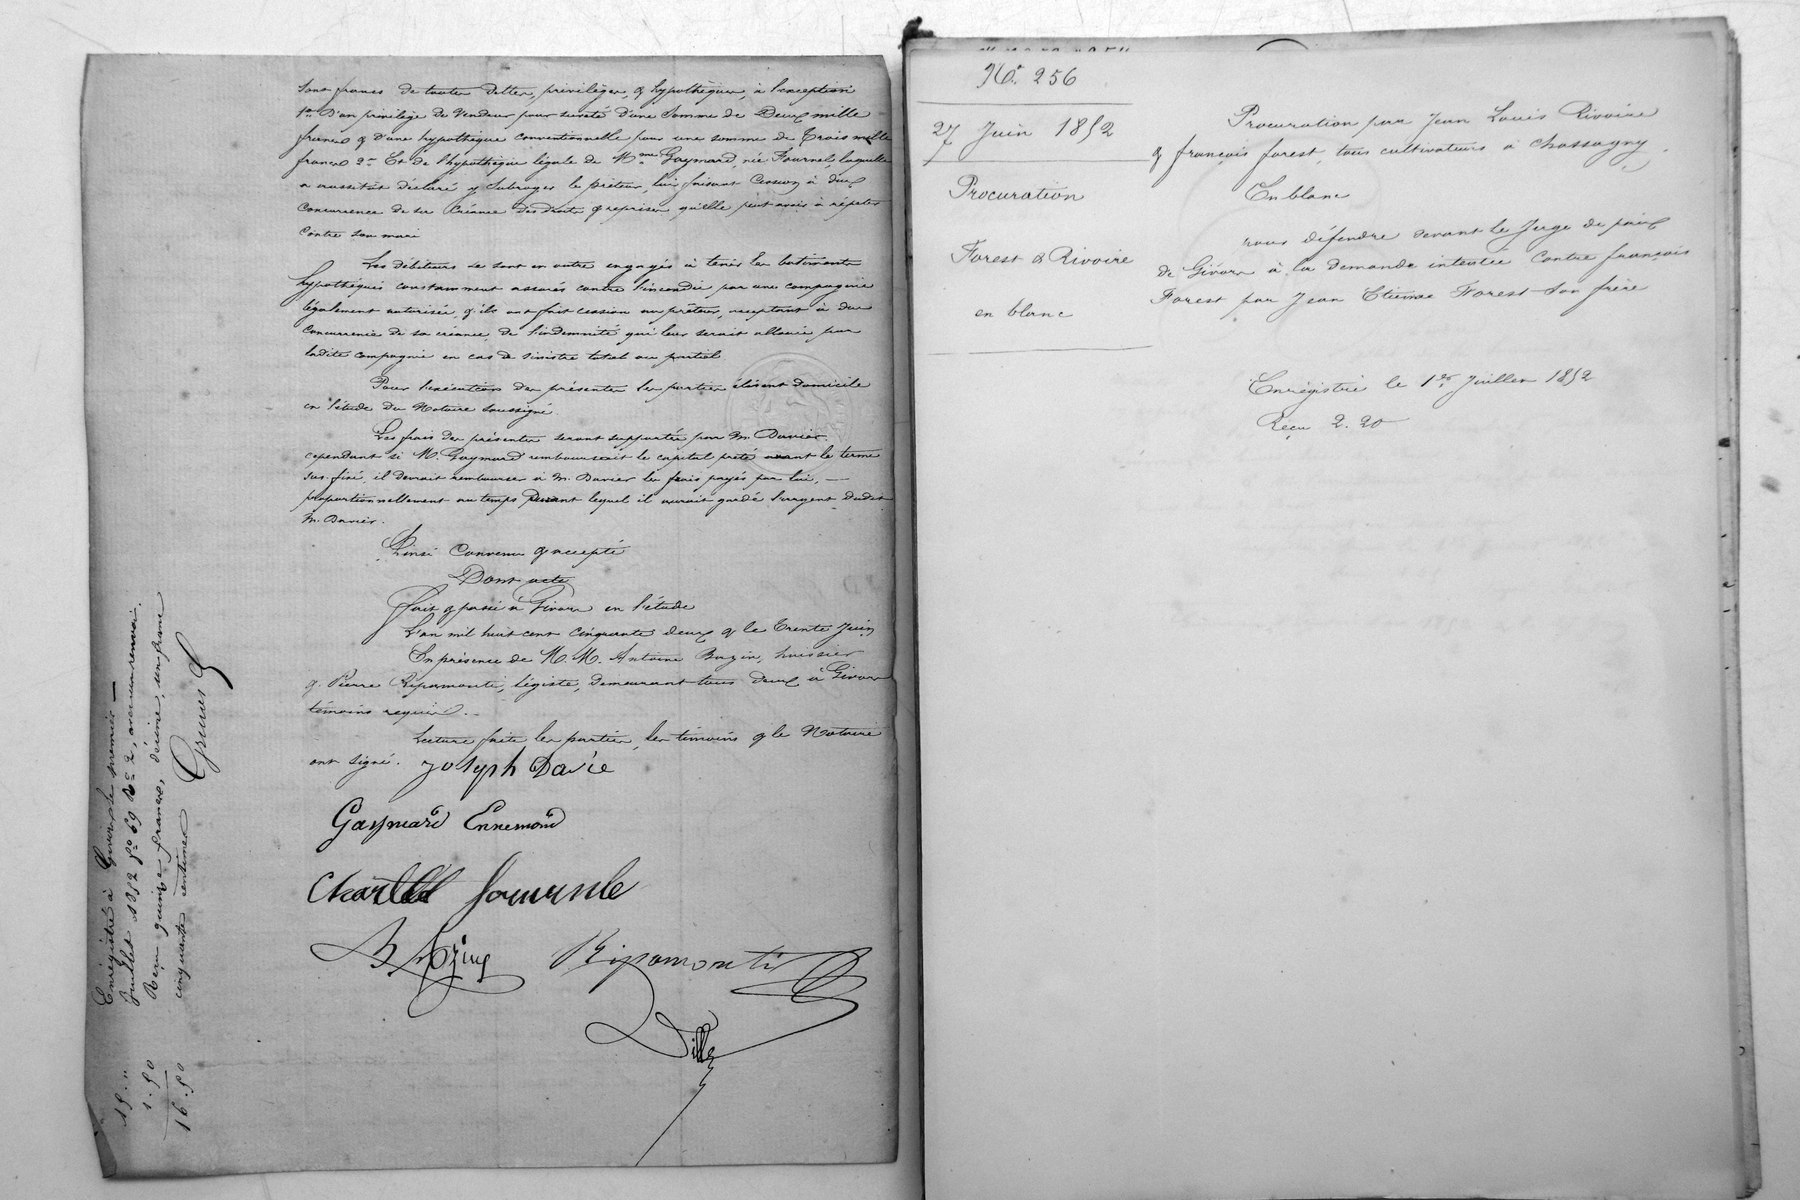 sont francs de toutes dettes, privilèges, & hypothèques, à l'exception
1° D'un privilège de Vendeur pour sureté d'une Somme de Deux mille
francs & d'une hypothèque conventionnelle pour une somme de Trois mille
francs 2° Et de l'hypothèque légale de Mme Gaymard, née Fournel, laquelle
a aussitôt déclaré y Subroger le prêteur, lui faisant Cession à due
Concurrence de sa Créance des droits & reprises qu'elle peut avoir à répéter
Contre son mari
Les débiteurs se sont en outre engagés à tenir les batiments
hypothéqués constamment assurés contre l'incendie par une compagnie
légalement autorisée, & ils ont fait cession au prêteur, acceptant à due
Concurrence de sa créance, de l'indemnité qui leur serait allouée par
ladite compagnie en cas de sinistre total ou partiel
Pour l'exécution des présentes les parties élisent domicile
en l'étude du Notaire soussigné.
Les frais des présentes seront supportés par M. Davier.
cependant si M. Gaymard remboursait le capital prêté avant le terme
sus-fixé, il devrait rembourser à M. Davier les frais payés par lui, —
proportionnellement au temps Durant lequel il aurait gardé l'argent Dudit
M. Davier.
Ainsi Convenu & accepté
Dont acte
Fait & passé à Givors en l'étude
L'an mil huit cent cinquante deux & le Trente Juin
En présence de M.M. Antoine Buzin, huissier
& Pierre Ripamonti, légiste, Demeurant tous deux à Givors
témoins requis. -
Lecture faite les parties, les témoins & le Notaire
ont signé. Joseph Davié
Gaymard Ennemond
Charlles fournele
Ripamonti
Enrégistré à Givors le premier —
Juillet 1852 f° 69 R° c 2, avec un renvoi.
Reçu quinze francs, décime, un franc
cinquante centimes
15 . "
1 . 50
16 . 50
N° 256
27 Juin 1852
Procuration
Forest & Rivoire
en blanc
Procuration par Jean Louis Rivoire
& françois forest, tous cultivateurs à Chassagny,
En blanc
pour défendre devant le Juge de paix
de Givors à la demande intentée Contre françois
Forest par Jean Etienne Forest son frère
Enrégistré le 1er Juillet 1852
Reçu 2.20